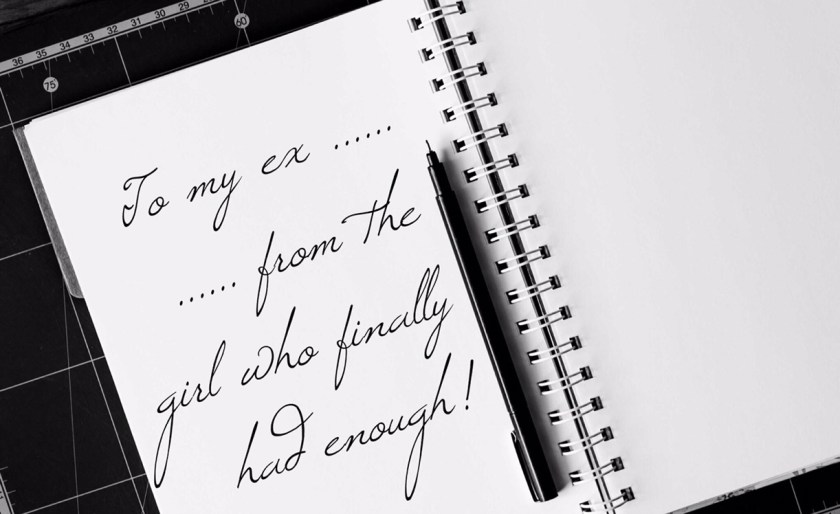 36 35 34 33 32 31 30 29 28 27 26
60
75
To my ex ......
...... from the
girl who finally
had enough!